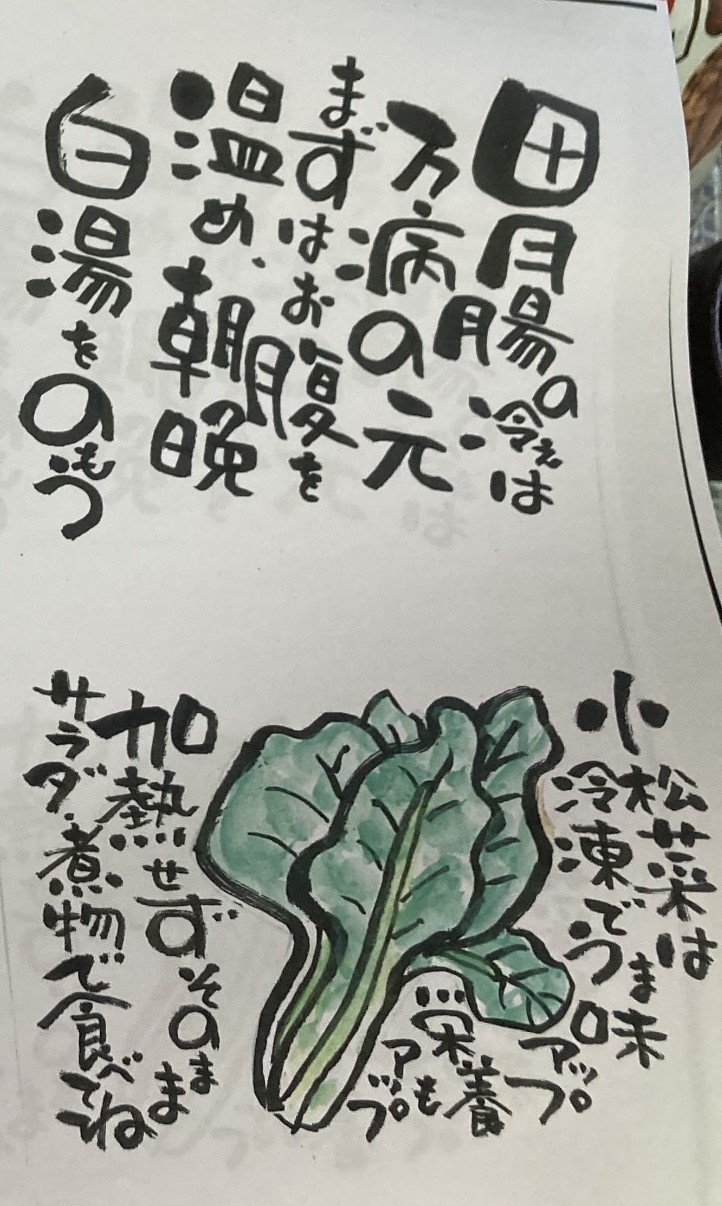 胃腸の冷えは
万病の元
まずはお腹を
温め、朝晩
白湯をのもう
小松菜は
冷凍でうま味
アップ
栄養も
アップ
加熱せずそのまま
サラダ、煮物で食べてね